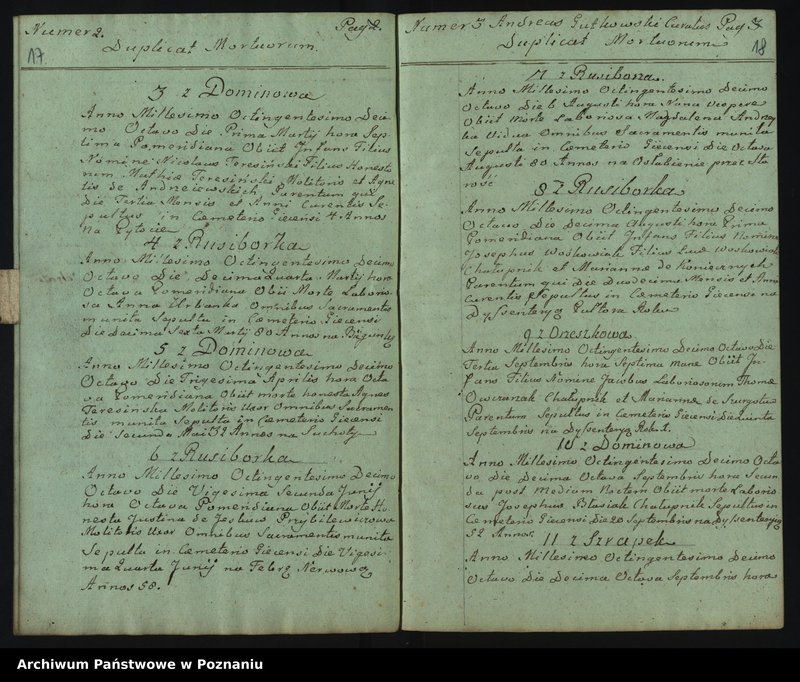 Numer 2. Pag 2.
17
Duplicat Mortuorum.
3 z Dominowa
Anno Millesimo Octingentesimo Deci-
mo Octavo Die Prima Martij hora Sep-
tima Pomeridiana Obiit Infans Filius
Nomine Nicolaus Teresinski Filius Honesto
rum Mathiæ Teresinski Molitoris et Agne
tis de Andrzejewskich, Parentum qui
Die Tertia Mensis et Anni Curentis Se-
pultus in Cemeterio Giecensi 4 Annos
Na
4 z Rusiborka
Anno Milesimo Octingentesimo Decimo
Octavo Die Decima Quarta Martij hora
Octava Pomeridiana Obii Morte Laborio
sa Anna Urbanka Omnibus Sacramentis
munita Sepulta in Cemeterio Giecensi
Die Decima Sexta Martij 80 Annos na
5 z Dominowa
Anno Millesimo Octingentesimo Decimo
Octavo Die Trigesima Aprilis hora Octa
va Pomeridiana Obiit morte honesta Agnes
Teresinska Molitoris Uxor Omnibus Sacramen
tis munita Sepulta in Cemeterio Giecensi
Die Secunda Maii 32 Annos na Suchoty
6 z Rusiborka
Anno Millesimo Octingentesimo Decimo
Octavo Die Vigesima Secunda Junij
hora Octava Pomeridiana Obiit Morte Ho
nesta Justina de Przybilewiczowa
Molitoris Uxor Omnibus Sacramentis munita
Sepulta in Cemeterio Giecensi Die Vigesi
ma Quarta Junij na Febrę Nerwową
Annos 58.
Numer 3 Andreas Gutkowski Curatus Pag 3
18
Duplicat Mortuorum
7 z Rusibona
Anno Millesimo Octingentesimo Decimo
Octavo Die 6 Augusti hora Nona Vespere
Obiit Morte Laboriosa Magdalena Andrzey
ka Vidua Omnibus Sacramentis munita
Sepulta in Cemeterio Giecensi Die Octava
Augusti 80 Annos na Osłabienie przez Sta
rość
8 z Rusiborka
Anno Millesimo Octingentesimo Decimo
Octavo Die Decima Augusti hora Prima
Pomeridiana Obiit Infans Filius Nomine
Josephus Woskowiak Filius Woskowiak
Chałupnik et Mariannæ de Koniecznych
Parentum qui Die Duodecima Mensis et Anni
Curentis Sepultus in Cemeterio Giecense na
Dyssenteryą Roku
9 z Orzeszkowa
Anno Millesimo Octingentesimo Decimo Octavo Die
Tertia Septembris hora Septima mane Obiit In-
fans Filius Nomine Jacobus Laboriosorum Thomæ
Owczarzak Chałupnik et Mariannæ de
Parentum Sepultus in Cemeterio Giecensi Die Quinta
Septembris na Dyssenteryą Rok 1.
10 z Dominowa
Anno Millesimo Octingentesimo Decimo Octa
vo Die Decima Octava Septembris hora Secun
da post Mediam Noctem Obiit morte Laborio
sus Josephus Blasiak Chałupnik Sepultus in
Cemeterio Giecensi Die 20 Septembris na Dyssenteryą
52 Annos
11 z Szrapek
Anno Millesimo Octingentesimo Decimo
Octavo Die Decima Octava Septembris hora
Archiwum Państwowe w Poznaniu
szukajwarchiwach.gov.pl